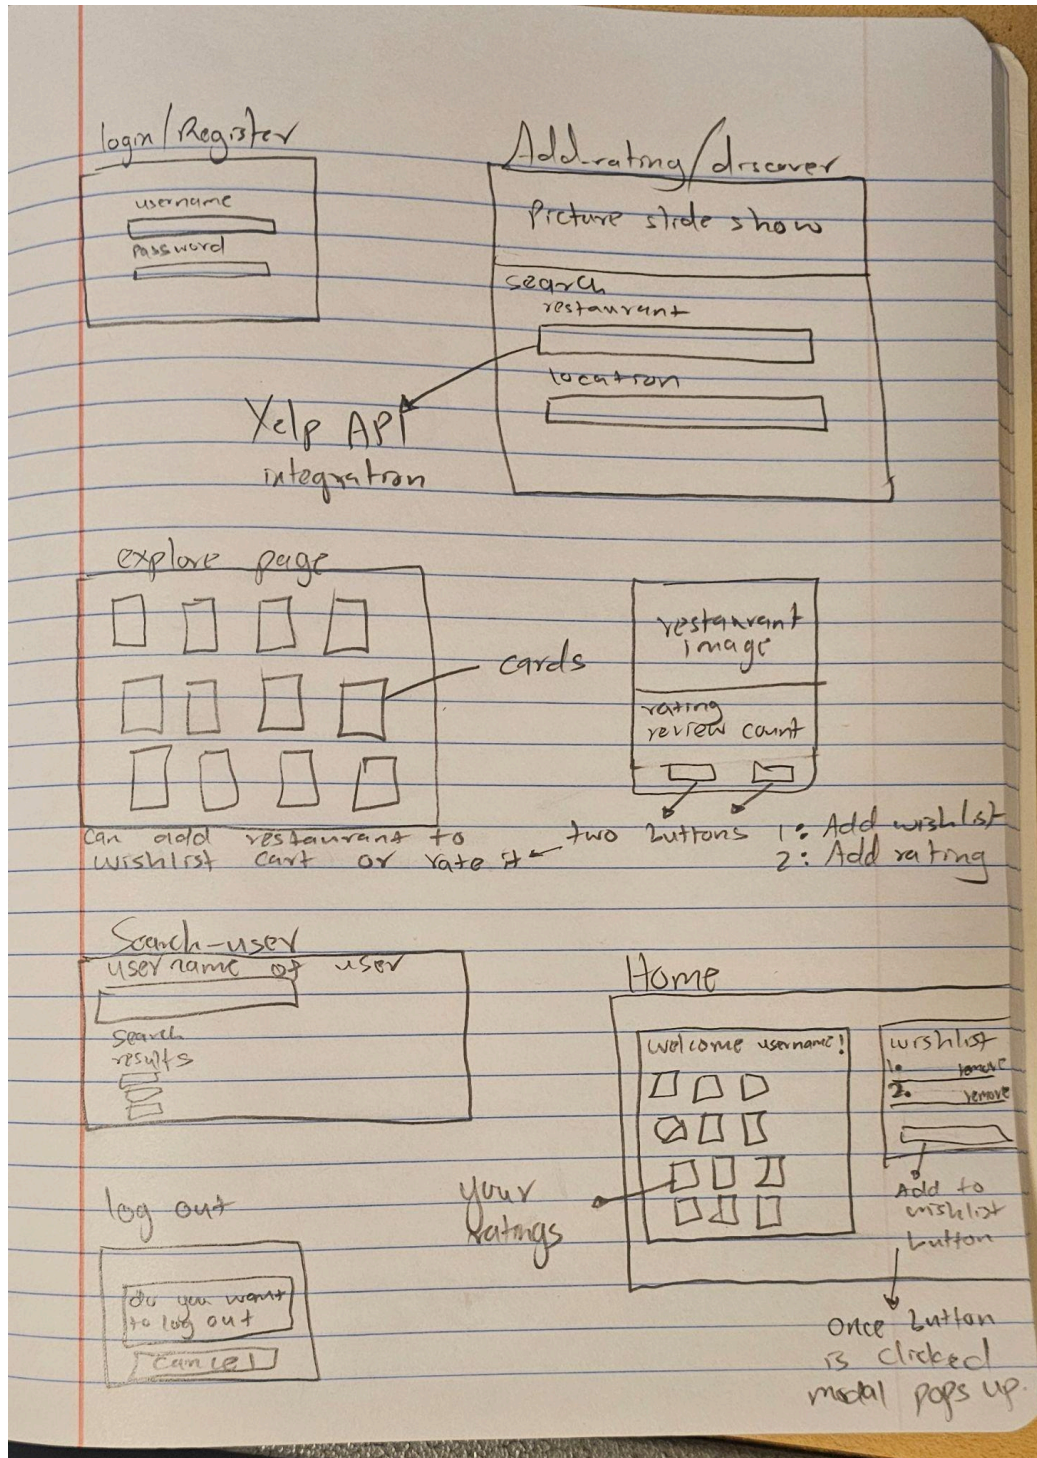 login/Register
username
password
Add-rating/discover
Picture slide show
search
restaurant
location
Yelp API
integration
explore page
cards
restaurant
image
rating
review count
can add restaurant to
wishlist cart or rate it
two buttons
1: Add wishlist
2: Add rating
Search-user
username of user
search
results
Home
welcome username!
wishlist
1. remove
2. remove
Add to
wishlist
button
your
ratings
Once button
is clicked
modal pops up.
log out
do you want
to log out
cancel